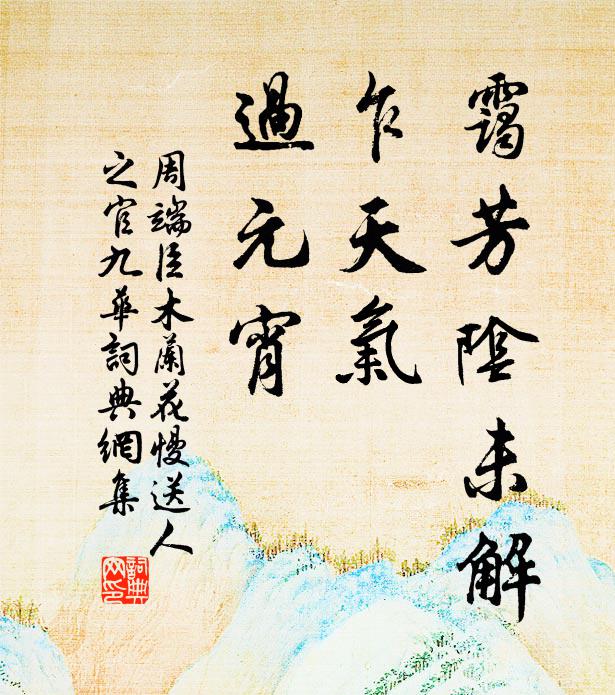 靄芳陰未解
乍天氣
過元宵
周端臣木蘭花慢送人
之官九華詞典網集
詞典
网印